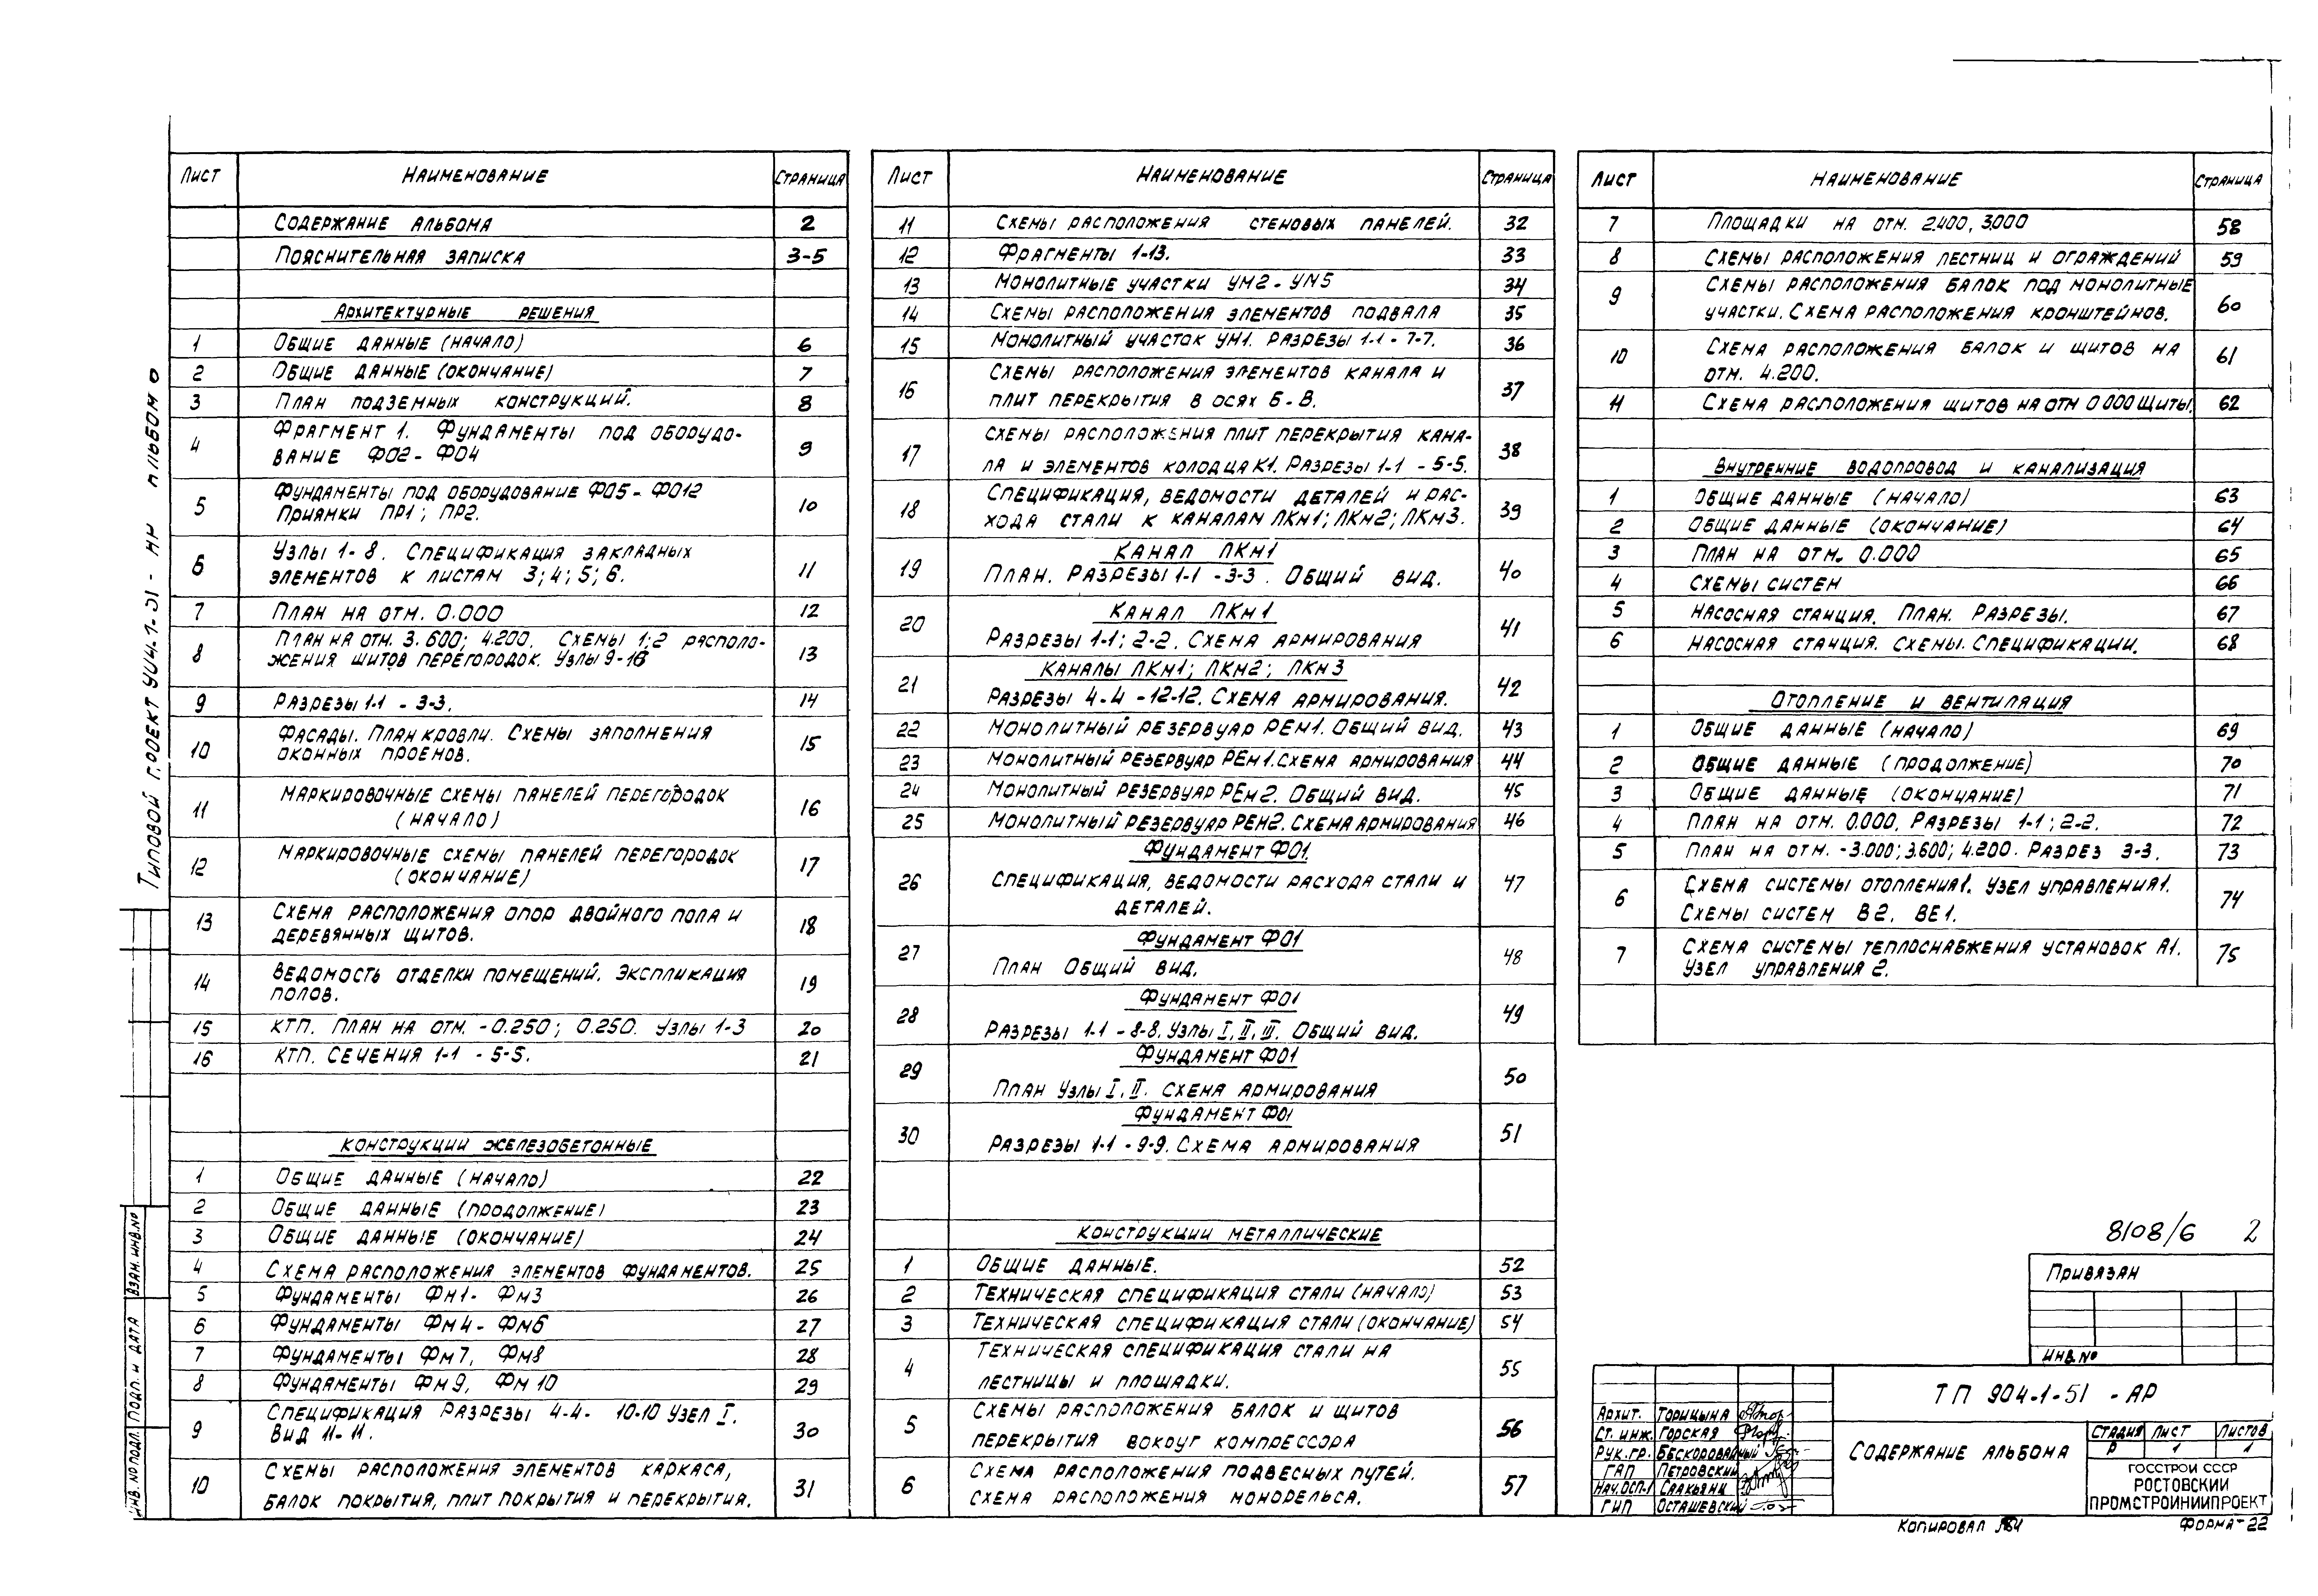 Лист Наименование Страница
Содержание альбома 2
Пояснительная записка 3-5
Архитектурные решения
1 Общие данные (начало) 6
2 Общие данные (окончание) 7
3 План подземных конструкций. 8
4 Фрагмент 1. Фундаменты под оборудо-
вание Ф02-Ф04 9
5 Фундаменты под оборудование Ф05-Ф012
Приямки ПР1; ПР2. 10
6 Узлы 1-8. Спецификация закладных
элементов к листам 3; 4; 5; 6. 11
7 План на отм. 0.000 12
8 План на отм. 3.600; 4.200. Схемы 1;2 располо-
жения щитов перегородок. Узлы 9-16 13
9 Разрезы 1-1 - 3-3. 14
10 Фасады. План кровли. Схемы заполнения
оконных проемов. 15
11 Маркировочные схемы панелей перегородок
(начало) 16
12 Маркировочные схемы панелей перегородок
(окончание) 17
13 Схема расположения опор двойного пола и
деревянных щитов. 18
14 Ведомость отделки помещений. Экспликация
полов. 19
15 КТП. План на отм. -0.250; 0.250. Узлы 1-3 20
16 КТП. Сечения 1-1 - 5-5. 21
Конструкции железобетонные
1 Общие данные (начало) 22
2 Общие данные (продолжение) 23
3 Общие данные (окончание) 24
4 Схема расположения элементов фундаментов. 25
5 Фундаменты Фм1- Фм3 26
6 Фундаменты Фм4- Фм6 27
7 Фундаменты Фм7, Фм8 28
8 Фундаменты Фм9, Фм10 29
9 Спецификация Разрезы 4-4- 10-10 Узел I.
Вид 11-11. 30
10 Схемы расположения элементов каркаса,
балок покрытия, плит покрытия и перекрытия. 31
Лист Наименование Страница
11 Схемы расположения стеновых панелей. 32
12 Фрагменты 1-13. 33
13 Монолитные участки УМ2-УМ5 34
14 Схемы расположения элементов подвала 35
15 Монолитный участок УМ1. Разрезы 1-1 - 7-7. 36
16 Схемы расположения элементов канала и
плит перекрытия в осях Б-В. 37
17 Схемы расположения плит перекрытия кана-
ла и элементов колодца К1. Разрезы 1-1 - 5-5. 38
18 Спецификация, ведомости деталей и рас-
хода стали к каналам ЛКм1; ЛКм2; ЛКм3. 39
19 Канал ЛКм1
План. Разрезы 1-1 - 3-3. Общий вид. 40
20 Канал ЛКм1
Разрезы 1-1; 2-2. Схема армирования 41
21 Каналы ЛКм1; ЛКм2; ЛКм3
Разрезы 4-4 - 12-12. Схема армирования. 42
22 Монолитный резервуар РЕм1. Общий вид. 43
23 Монолитный резервуар РЕм1. Схема армирования 44
24 Монолитный резервуар РЕм2. Общий вид. 45
25 Монолитный резервуар РЕм2. Схема армирования 46
26 Фундамент Ф01.
Спецификация, ведомости расхода стали и
деталей. 47
27 Фундамент Ф01
План Общий вид. 48
28 Фундамент Ф01
Разрезы 1-1 - 8-8. Узлы I, II, III. Общий вид. 49
29 Фундамент Ф01
План Узлы I, II. Схема армирования 50
30 Фундамент Ф01
Разрезы 1-1 - 9-9. Схема армирования 51
Конструкции металлические
1 Общие данные. 52
2 Техническая спецификация стали (начало) 53
3 Техническая спецификация стали (окончание) 54
4 Техническая спецификация стали на
лестницы и площадки. 55
5 Схемы расположения балок и щитов
перекрытия вокруг компрессора 56
6 Схема расположения подвесных путей.
Схема расположения монорельса. 57
Лист Наименование Страница
7 Площадки на отм. 2.400, 3.000 58
8 Схемы расположения лестниц и ограждений 59
9 Схемы расположения балок под монолитные
участки. Схема расположения кронштейнов. 60
10 Схема расположения балок и щитов на
отм. 4.200. 61
11 Схема расположения щитов на отм 0.000 Щиты. 62
Внутренние водопровод и канализация
1 Общие данные (начало) 63
2 Общие данные (окончание) 64
3 План на отм. 0.000 65
4 Схемы систем 66
5 Насосная станция. План. Разрезы. 67
6 Насосная станция. Схемы. Спецификации. 68
Отопление и вентиляция
1 Общие данные (начало) 69
2 Общие данные (продолжение) 70
3 Общие данные (окончание) 71
4 План на отм. 0.000. Разрезы 1-1; 2-2. 72
5 План на отм. -3.000; 3.600; 4.200. Разрез 3-3. 73
6 Схема системы отопления 1. Узел управления 1.
Схемы систем В2. ВЕ1. 74
7 Схема системы теплоснабжения установок А1.
Узел управления 2. 75
8108/6 2
Привязан
Инв. №
ТП 904-1-51 -АР
Содержание альбома
Стадия Лист Листов
Р 1 1
ГОССТРОЙ СССР
РОСТОВСКИЙ
ПРОМСТРОЙНИИПРОЕКТ
Архит. Торицына
Ст. инж. Горская
Рук. гр. Бескоровайный
ГАП Петровский
Нач. осп-1 Саакьянц
ГИП Осташевский
Копировал
Форма 22
Типовой проект 904-1-51 - АР альбом 0
Взам. инв. №
Подп. и дата
Инв. № подл.